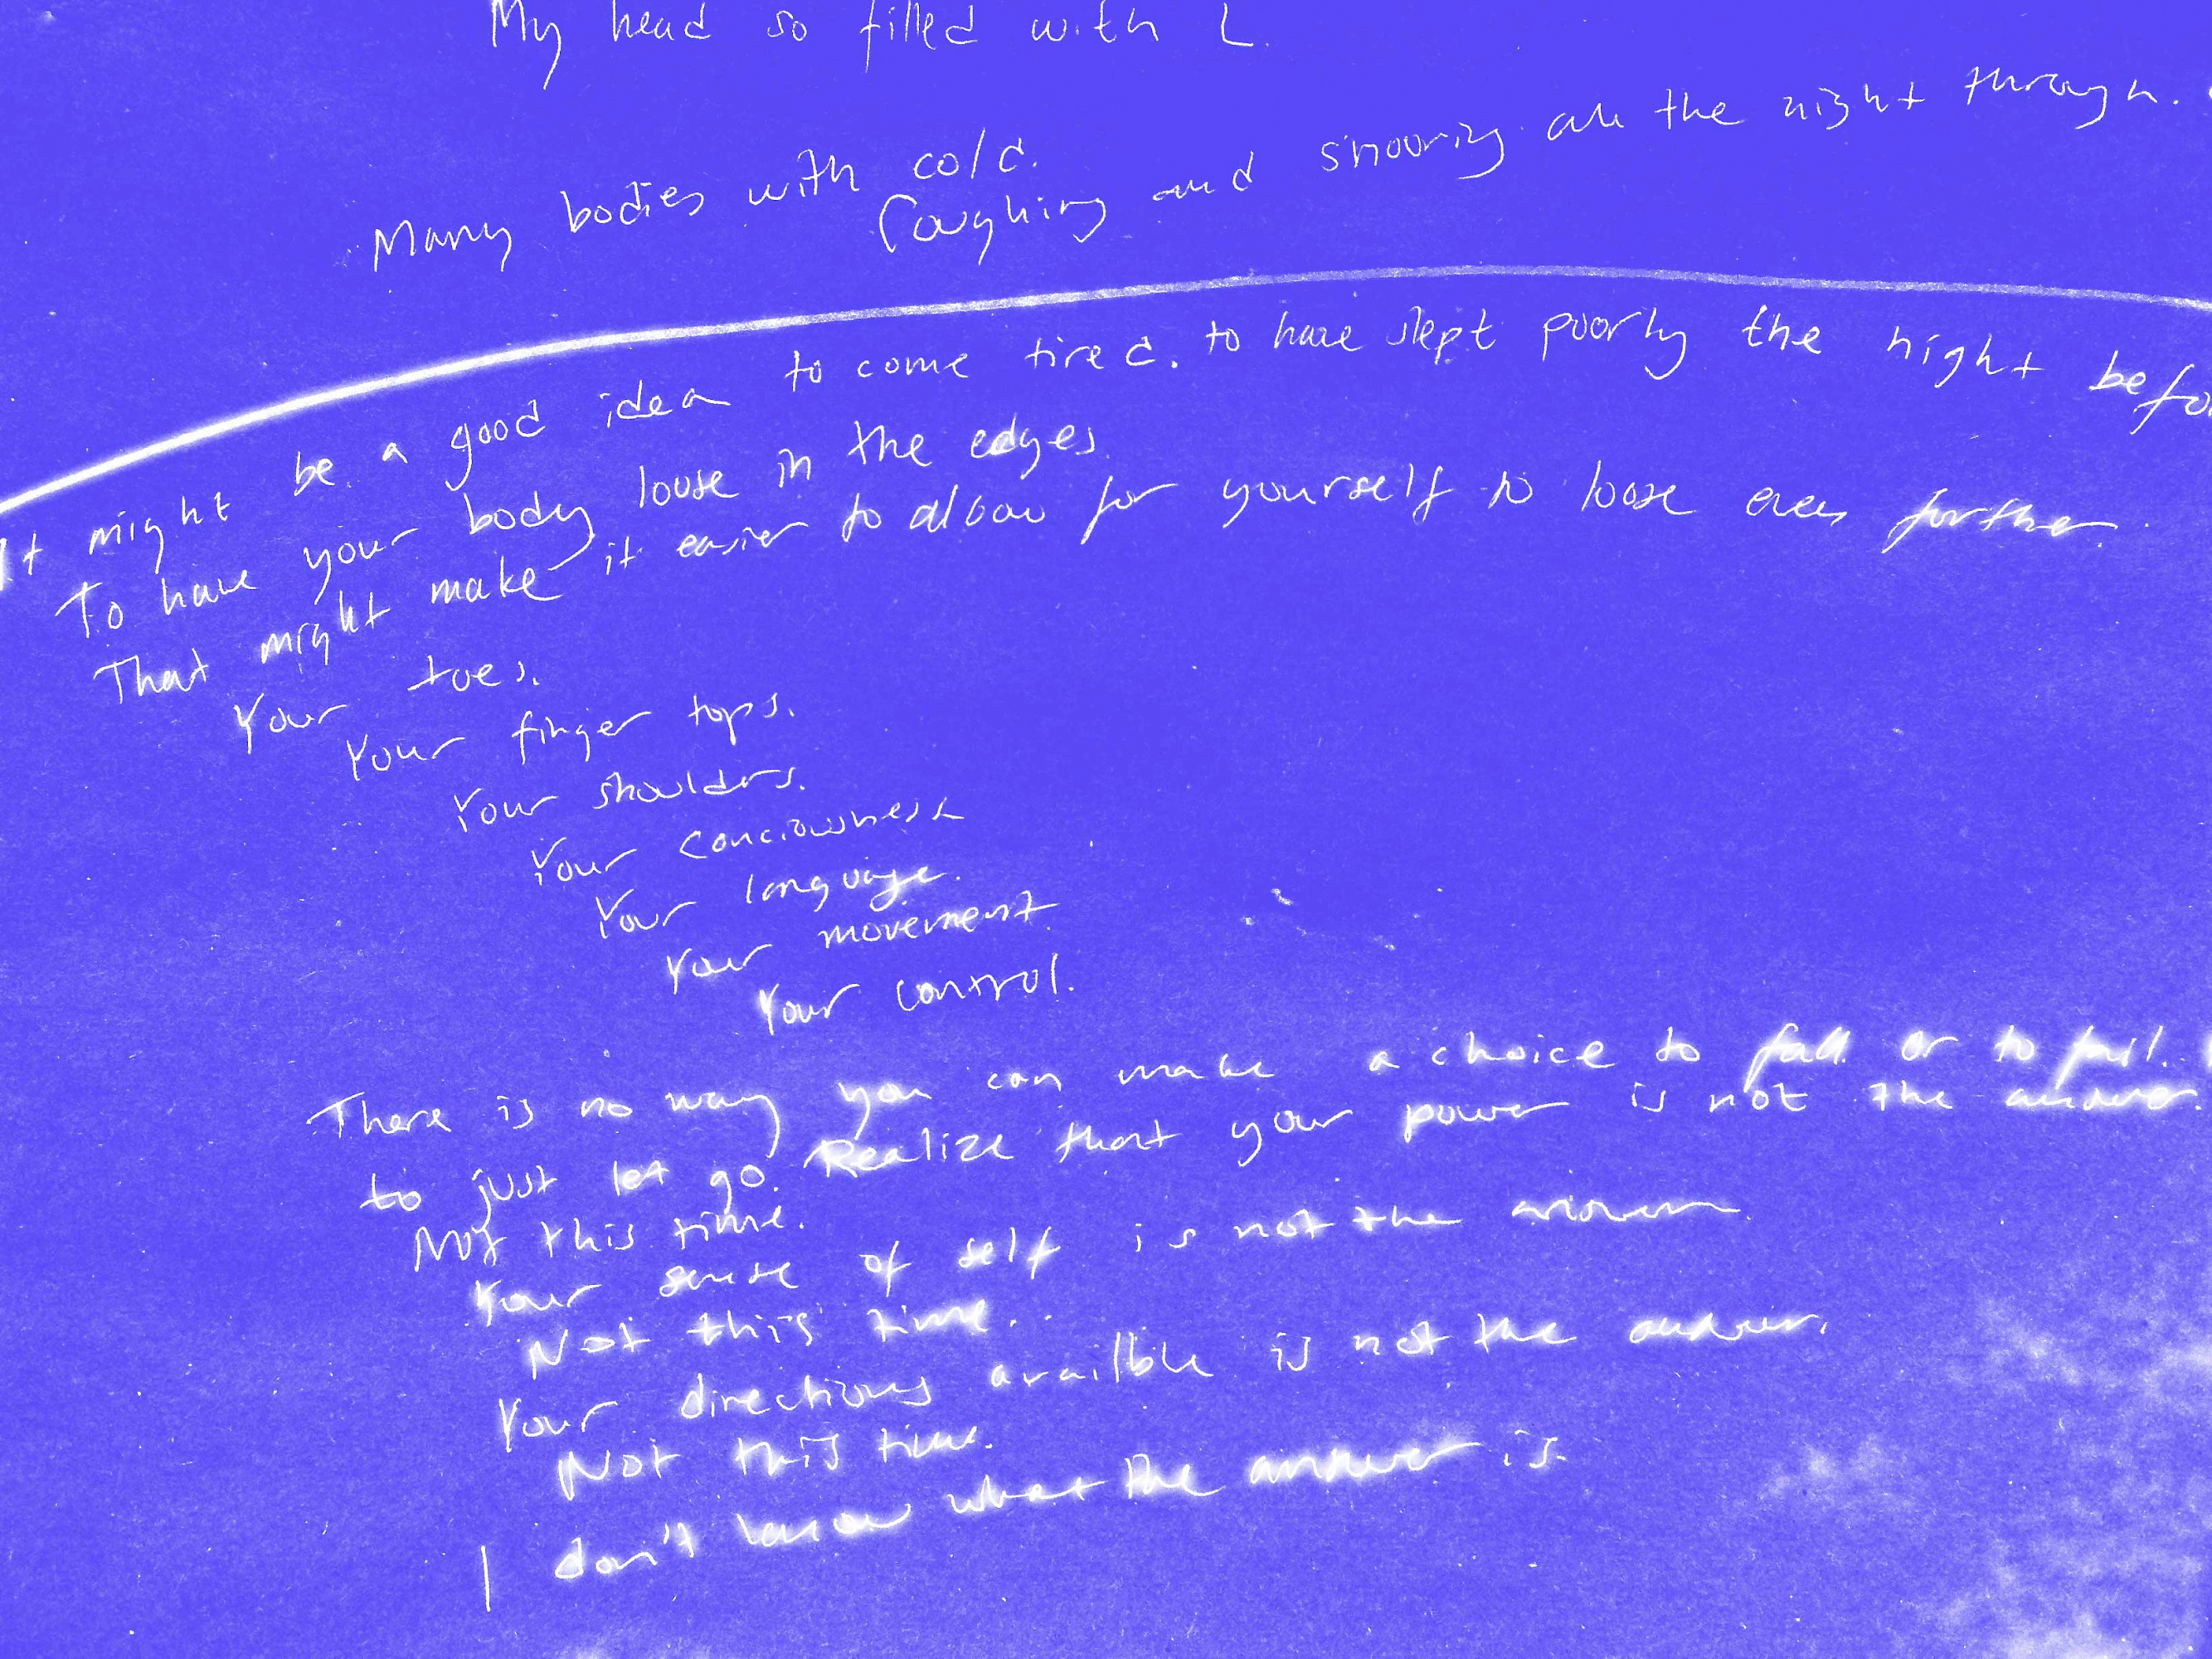 My head so filled with L.
Many bodies with cold.
Coughing and snooring all the night through.
It might be a good idea to come tired. to have slept poorly the night befo
To have your body loose in the edges.
That might make it easier to allow for yourself to loose even further.
Your toes.
Your finger tops.
Your shoulders.
Your conciousness
Your language.
Your movement
Your control.
There is no way you can make a choice to fall or to fail.
to just let go. Realize that your power is not the answer.
Not this time.
Your sense of self is not the answer
Not this time.
Your directions availble is not the answer.
Not this time.
I don't know what the answer is.